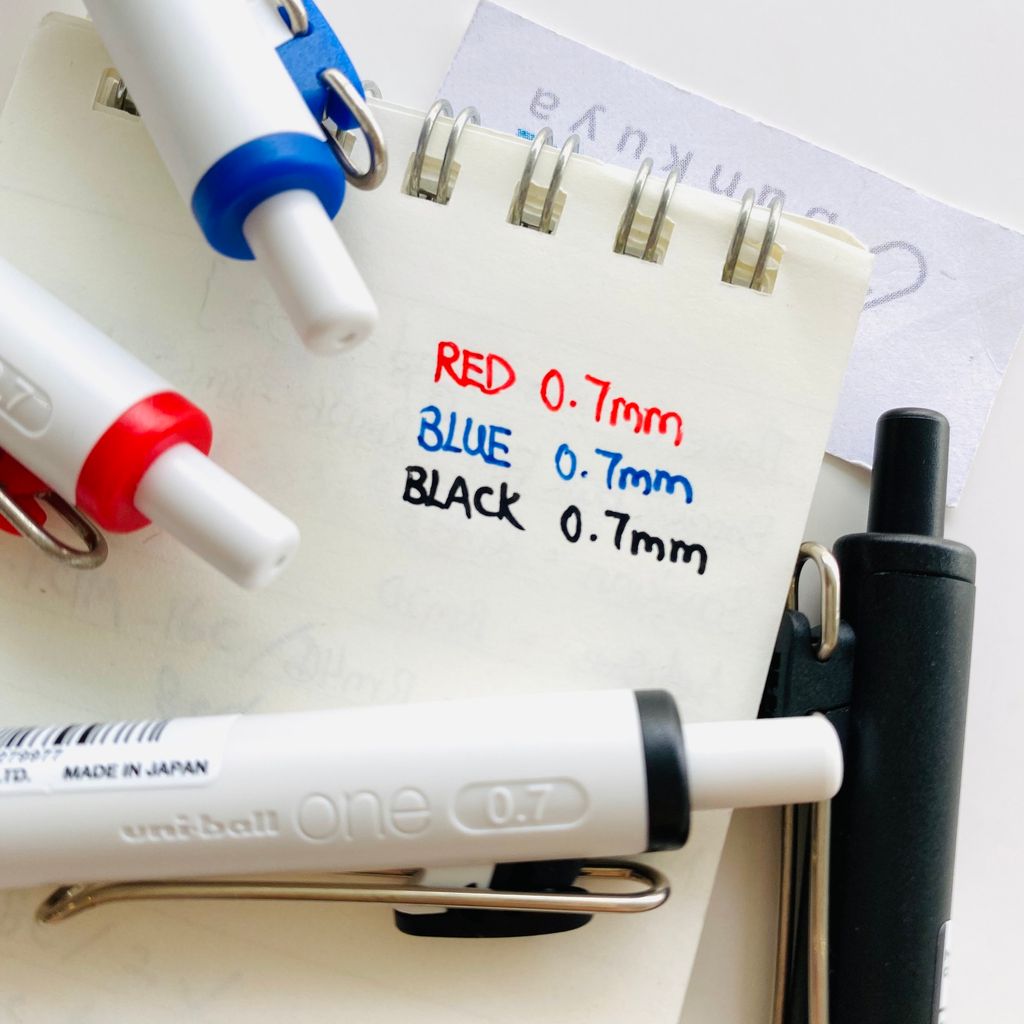 RED 0.7mm
BLUE 0.7mm
BLACK 0.7mm
0.7
LTD. MADE IN JAPAN
uni-ball one 0.7